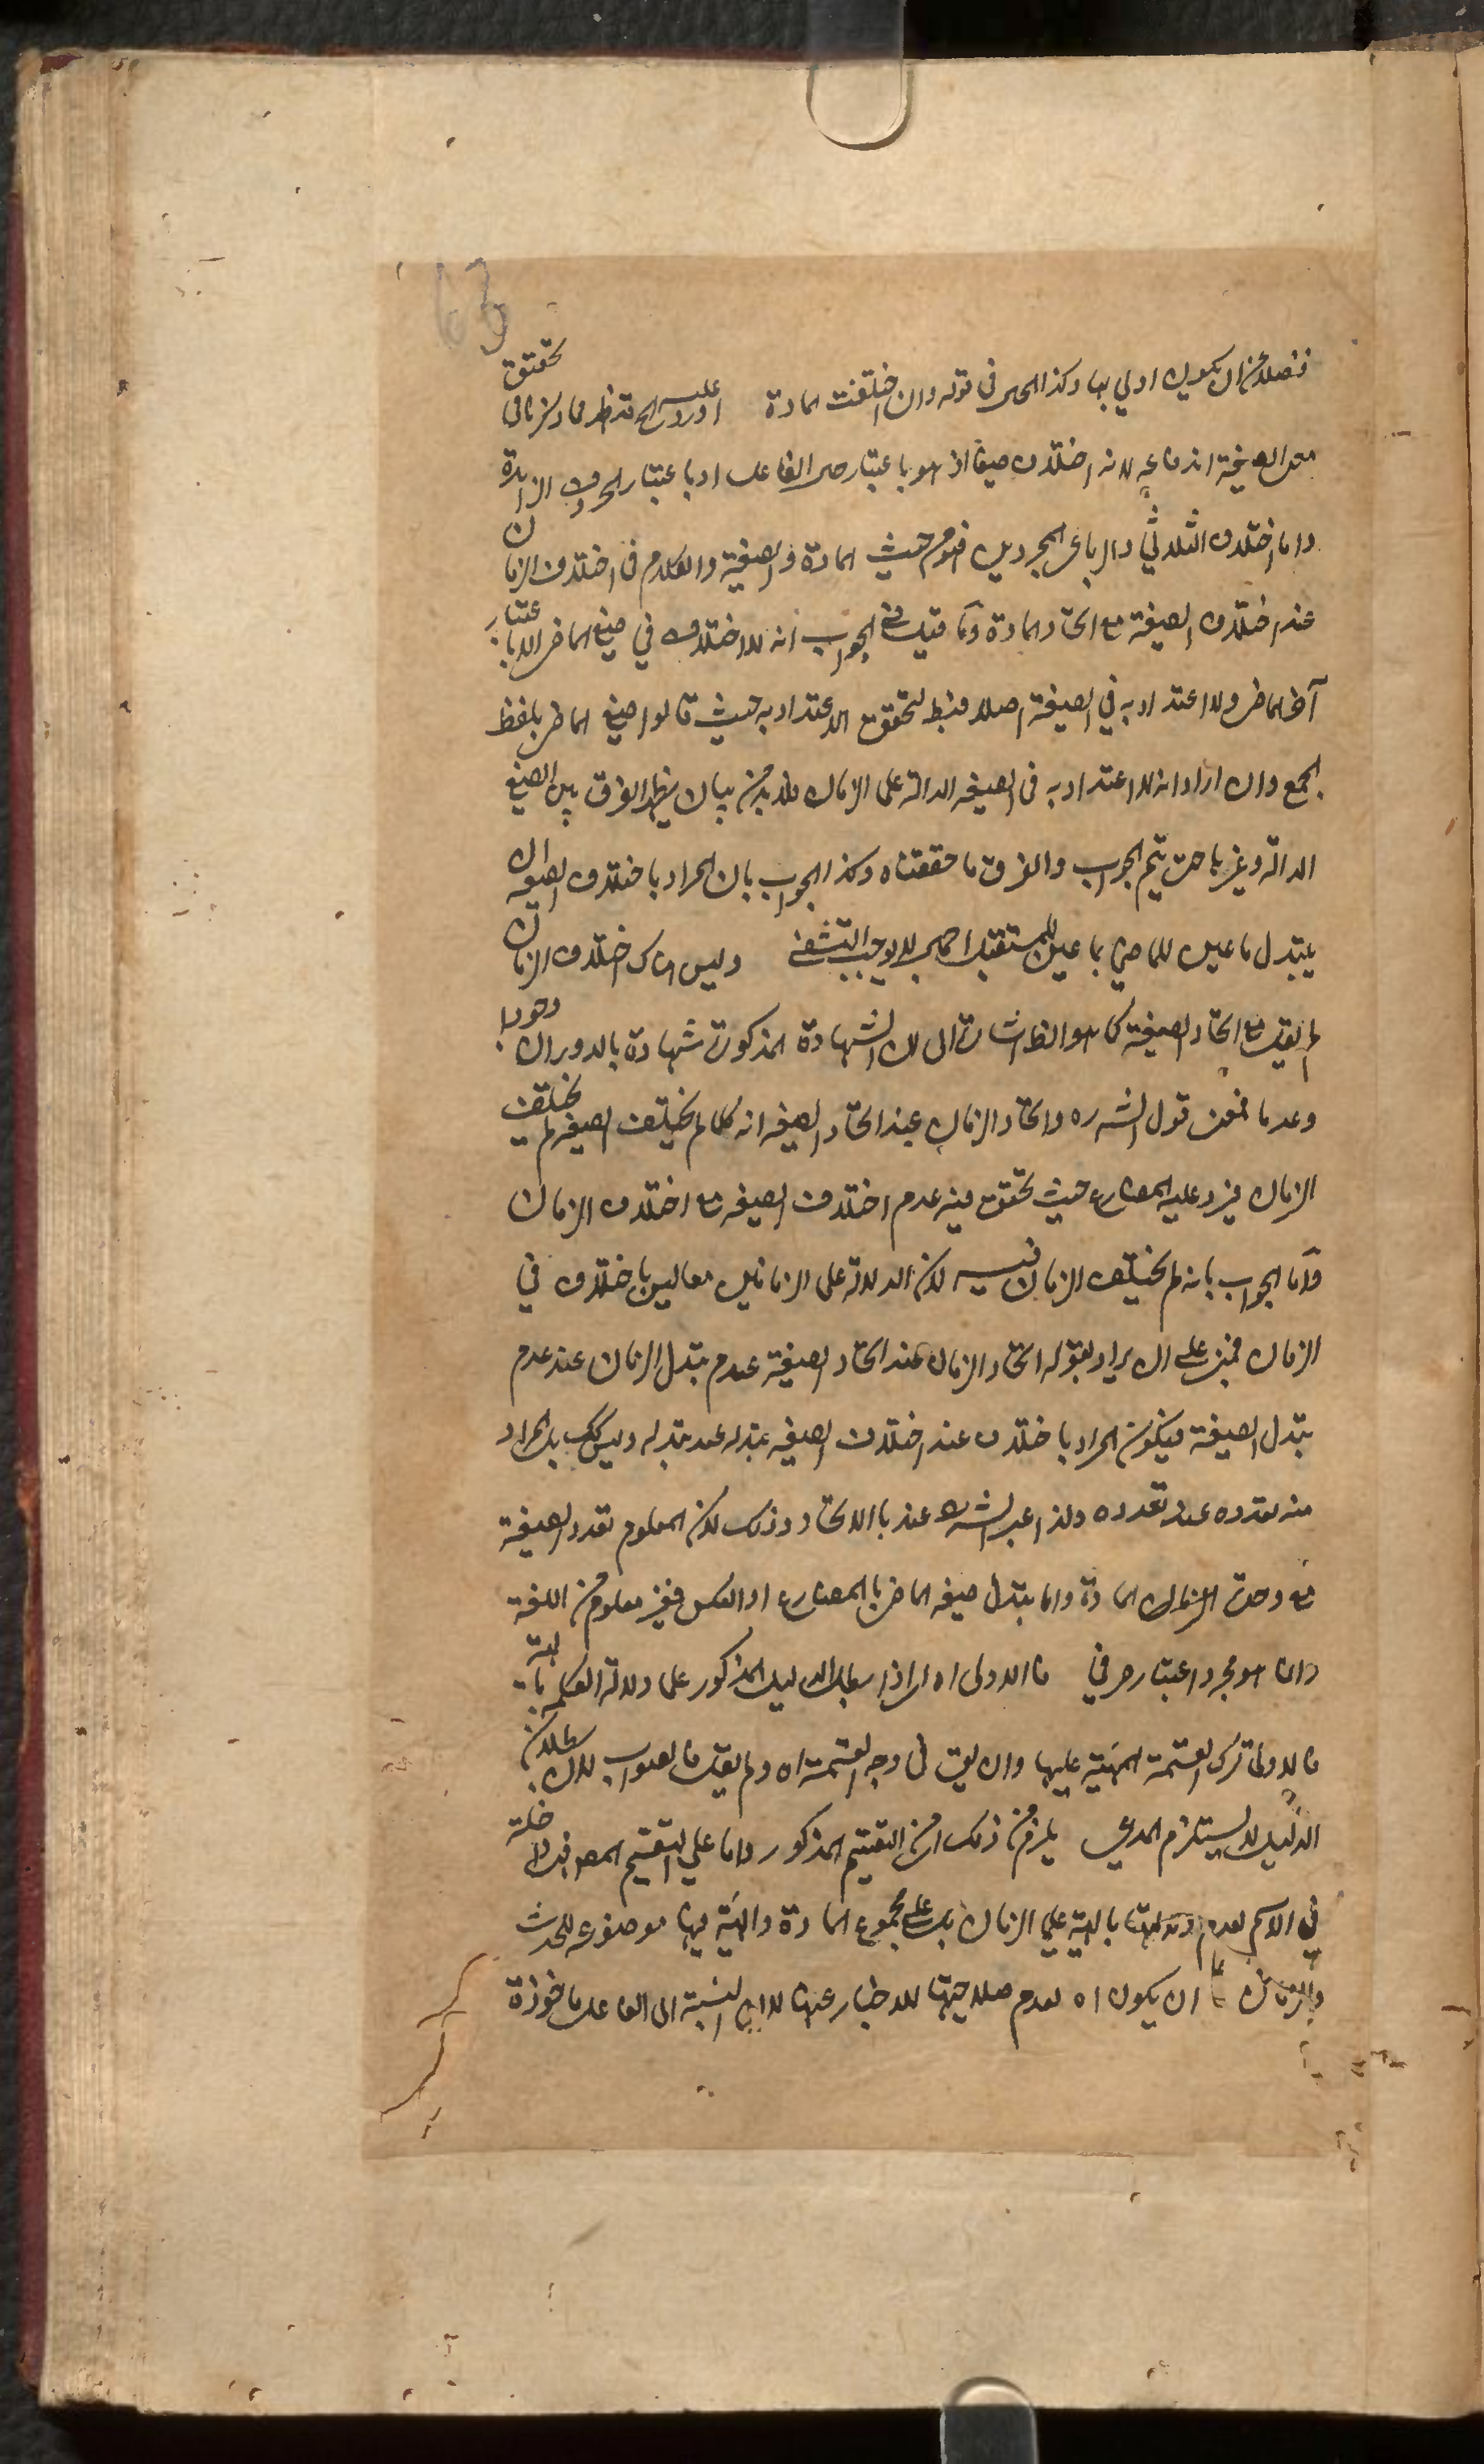 63
فضلا من ان يكون اولي بها وكذا الحال في قوله وان اختلفت المادة اورد عليه قد ظهر مما ذكرنا في تحقيق
معنى الصيغة اندفاعه لانه اختلاف صيغا اذ هو باعتبار حال الفاعل او باعتبار الحروف الزايدة
واما اختلاف الثلاثي والرباعي المجردين فهو من حيث المادة والصيغة والكلام في اختلاف الزمان
عند اختلاف الصيغة مع اتحاد المادة وما قيل في الجواب انه لا اختلاف في صيغ الماضي الا باعتبار
آخر الماضي ولا اعتداد به في الصيغة اصلا فبط لتحقق الاعتداد به حيث قالوا صيغ الماضي بلفظ
الجمع وان اراد انه لا اعتداد به في الصيغة الدالة على الزمان فلا بد من بيان يظهر الفرق بين الصيغ
الدالة وغيرها حتى يتم الجواب والفرق ما حققناه وكذا الجواب بان المراد باختلاف الصيغة ان
يتبدل ما عين للماضي بما عين للمستقبل لا يوجب التشفي وليس هناك اختلاف الزمان
لم يقل مع اتحاد الصيغة كما هو الظ اشارة الى ان الشهادة المذكورة شهادة بالدوران وجودا
وعدما فمعنى قول الش ره واتحاد الزمان عند اتحاد الصيغة انه كلما لم يختلف الصيغة لم يختلف
الزمان فيرد عليه المضارع حيث تحقق فيه عدم اختلاف الصيغة مع اختلاف الزمان
واما الجواب بانه لم يختلف الزمان فيه لان الدلالة على الزمانين معا ليس باختلاف في
الزمان فمبني على ان يراد بقوله اتحاد الزمان عند اتحاد الصيغة عدم تبدل الزمان عند عدم
تبدل الصيغة فيكون المراد باختلاف عند اختلاف الصيغة تبدله عند تبدله وليس كك بل المراد
منه تعدده عند تعدده ولذا عبر الش ره عند بالاتحاد وذلك لان المعلوم تعدد الصيغة
مع وحدة المادة واما تبدل صيغة الماضي بالمضارع او العكس فغير معلوم من اللغة
وانما هو مجرد اعتبار صرفي فالاولى اه الدليل المذكور على دلالة الكلمة بالهيئة
فالاولى ترك القسمة المبنية عليها وان يق في وجه القسمة اه ولم يقل فالصواب لان بطلان
الدليل لا يستلزم المدعي يلزم من ذلك من التقسيم المذكور واما على تقسيم المص فداخلة
في الاسم لعدم دلالتها بالهيئة علي الزمان بل على مجموع المادة والهيئة فيها موضوعة للحدث
والزمان ان يكون اه لعدم صلاحيتها للاخبار عنها لان النسبة الى الفاعل ماخوذة